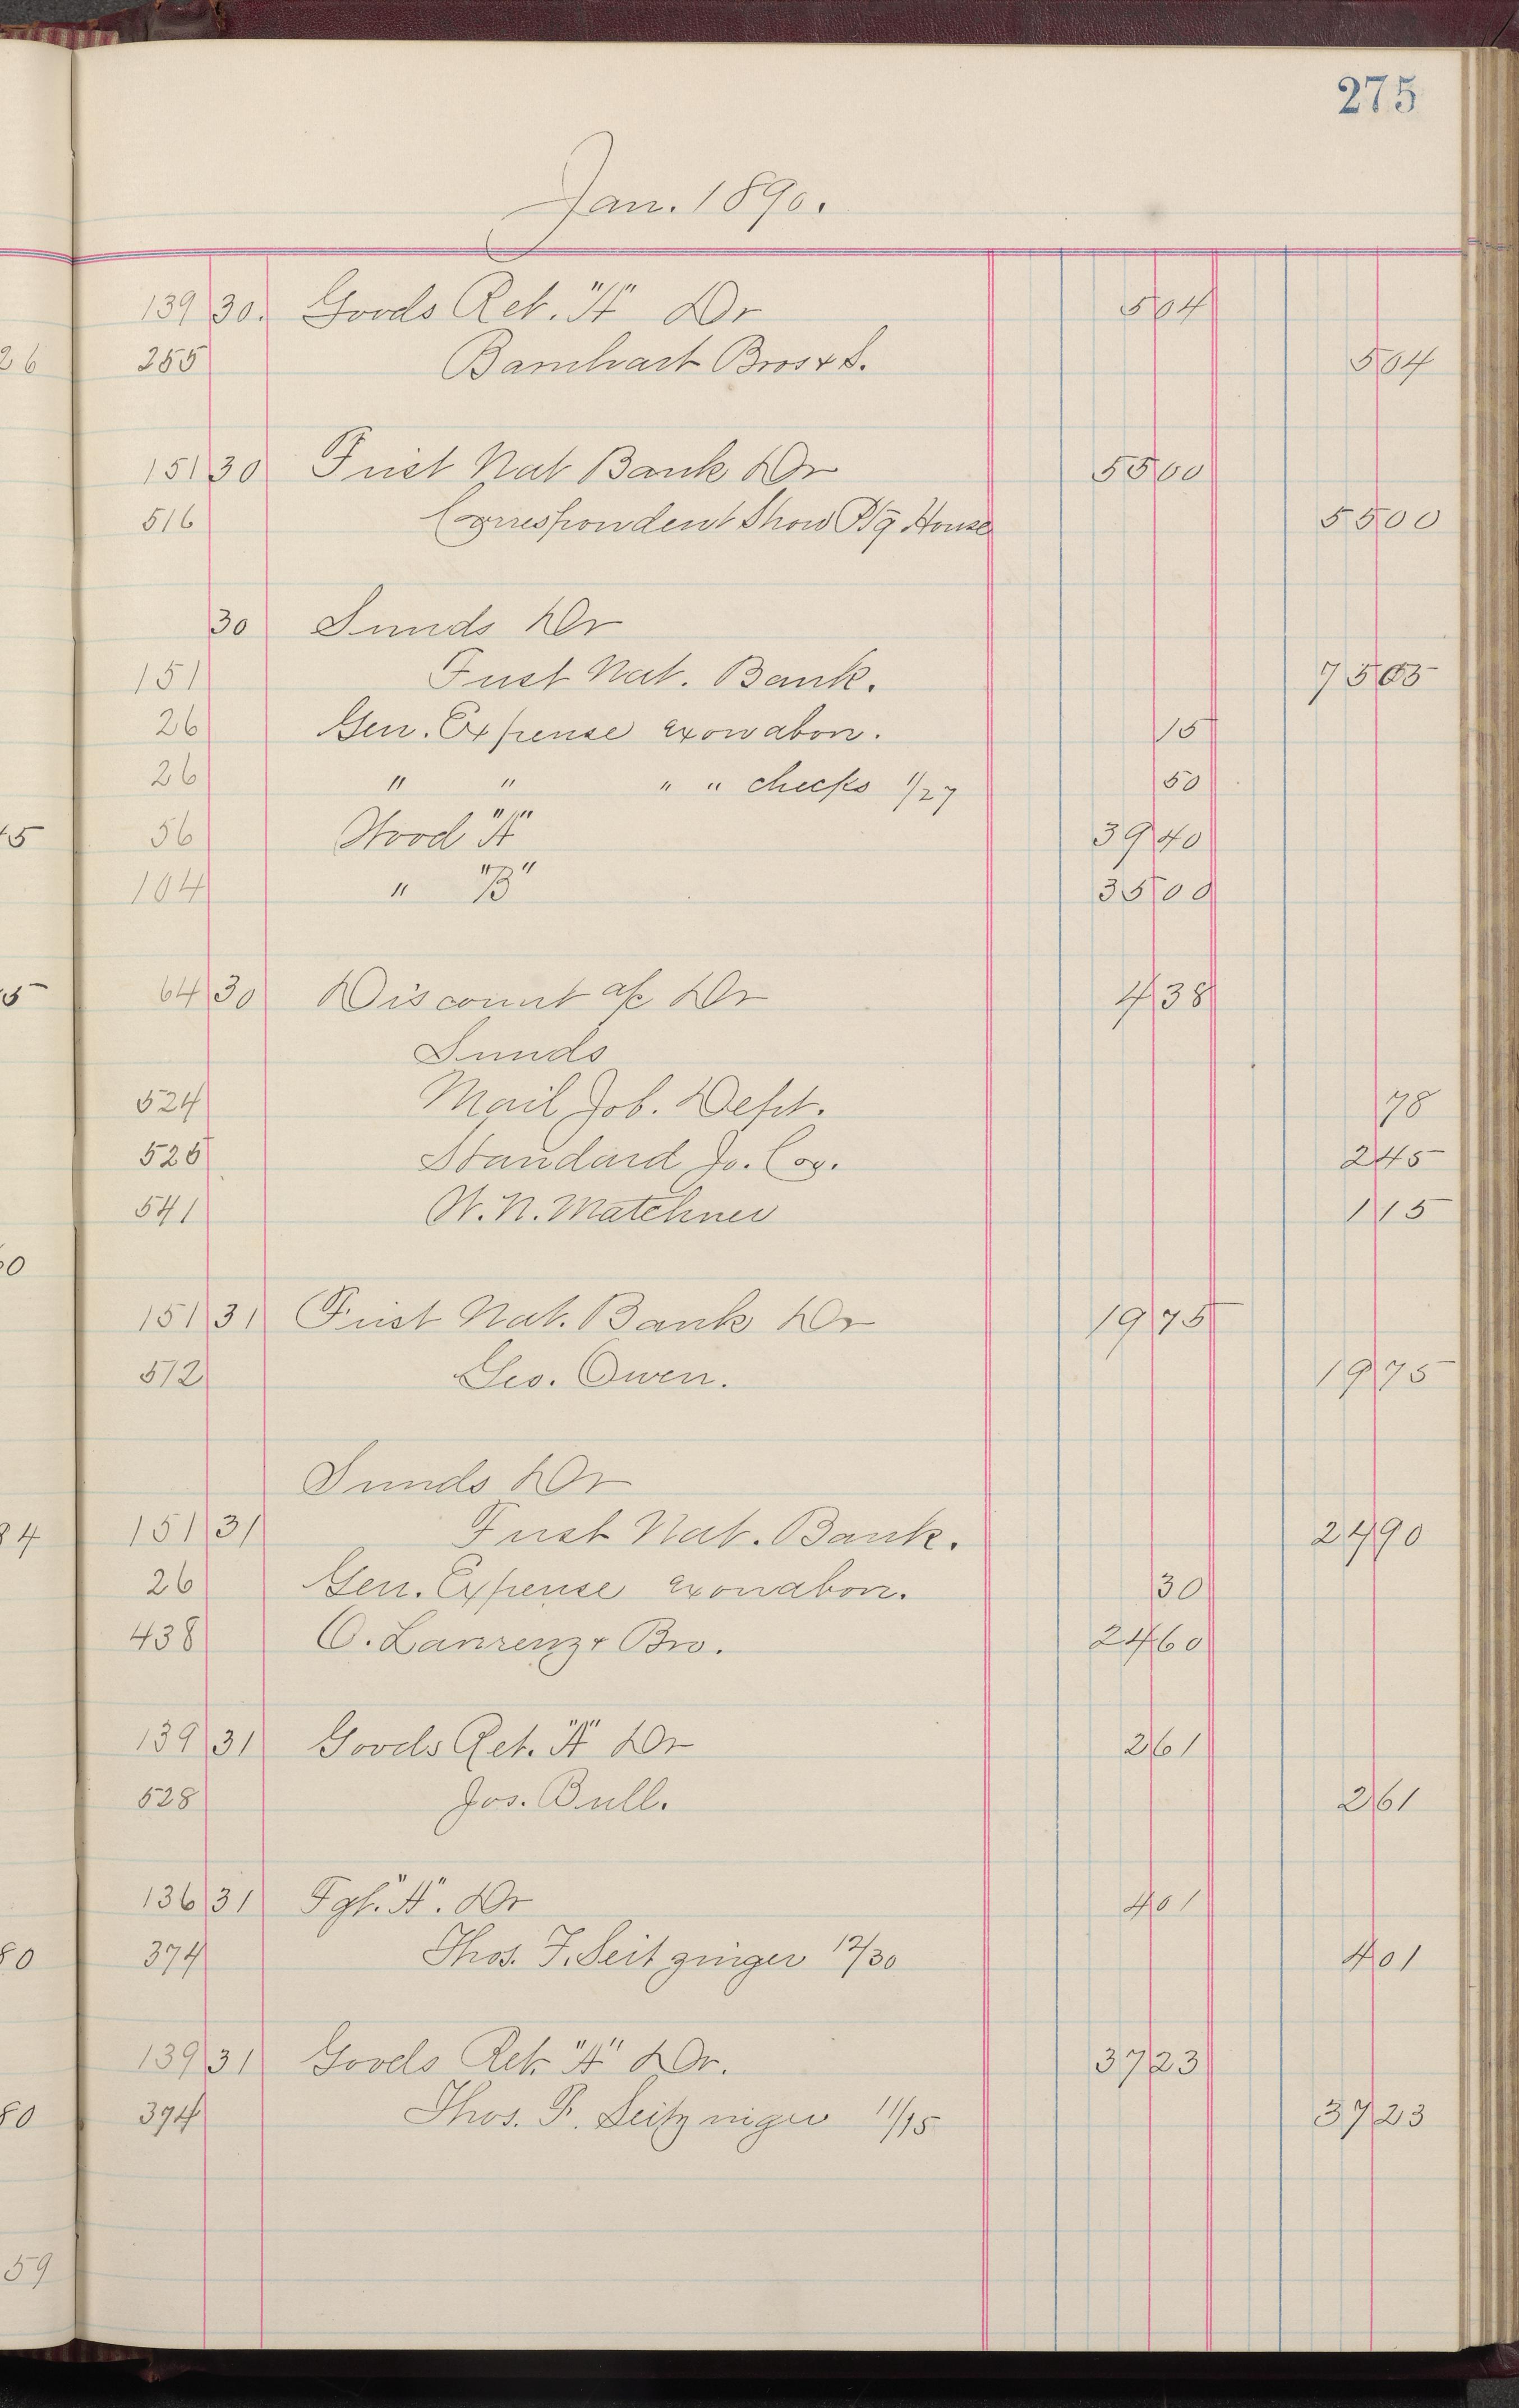 275
Jan. 1890.
139 30. Goods Ret. "A" Dr 5 04
26 255 Barnhart Bros & S. 5 04
151 30 First Nat Bank Dr 55 00
516 Correspondent Show Ptg House 55 00
30 Sunds Dr
151 First Nat. Bank. 75 05
26 Gen. Expense exon abon. 15
26 " " " " checks 1/27 50
56 Wood "A" 39 40
104 " "B" 35 00
64 30 Discount a/c Dr 4 38
Sunds
524 Mail Job. Dept. 78
525 Standard Jo. Coy. 2 45
541 W. N. Matchner 1 15
151 31 First Nat. Bank Dr 19 75
512 Geo. Owen. 19 75
Sunds Dr
84 151 31 First Nat. Bank. 24 90
26 Gen. Expense exon abon. 30
438 C. Lanrenz & Bro. 24 60
139 31 Goods Ret. "A" Dr 2 61
528 Jos. Bull. 2 61
136 31 Fgt. "A". Dr 4 01
80 374 Thos. F. Seitzinger 12/30 4 01
139 31 Goods Ret "A" Dr. 37 23
80 394 Thos. F. Seitzinger 11/15 37 23
59